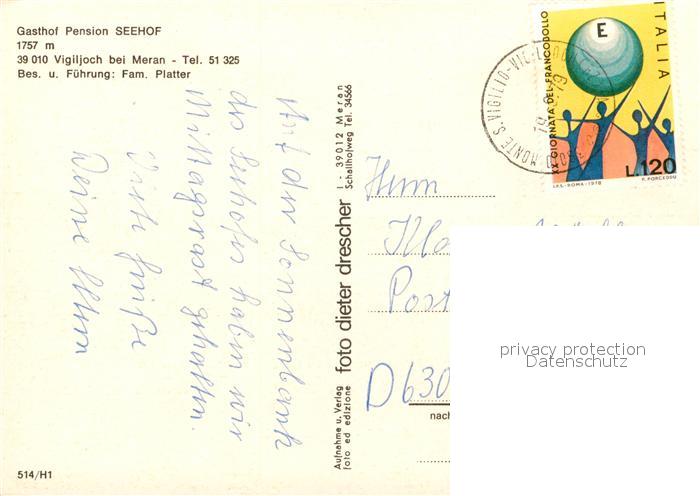 Gasthof Pension SEEHOF
1757 m
39 010 Vigiljoch bei Meran - Tel. 51 325
Bes. u. Führung: Fam. Platter
Auf der Sonnenbank
des Seehofes haben wir
Mittagsrast gehalten.
Herzl. Grüße
Deine Eltern
514/H1
Aufnahme u. Verlag
foto ed edizione
foto dieter drescher
I - 39012 Meran
Schallhofweg Tel. 34566
Herrn
Post
D 630
nach
MONTE S. VIGILIO - VIGILJOCH
XX GIORNATA DEL FRANCOBOLLO
E
ITALIA
L.120
I.P.S.-ROMA-1978
P. PORCEDDU
privacy protection
Datenschutz